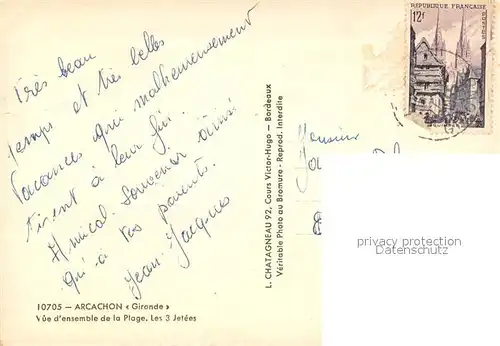 Très beau
temps et très belles
Vacances qui malheureusement
tirent à leur fin.
Amical Souvenir ainsi
qu'à tes parents.
Jean-Jacques
10705 — ARCACHON « Gironde »
Vüe d'ensemble de la Plage. Les 3 Jetées
L. CHATAGNEAU 92, Cours Victor-Hugo — Bordeaux
Véritable Photo au Bromure - Reprod. interdite
RÉPUBLIQUE FRANÇAISE
12F
POSTES
Monsieur
privacy protection
Datenschutz